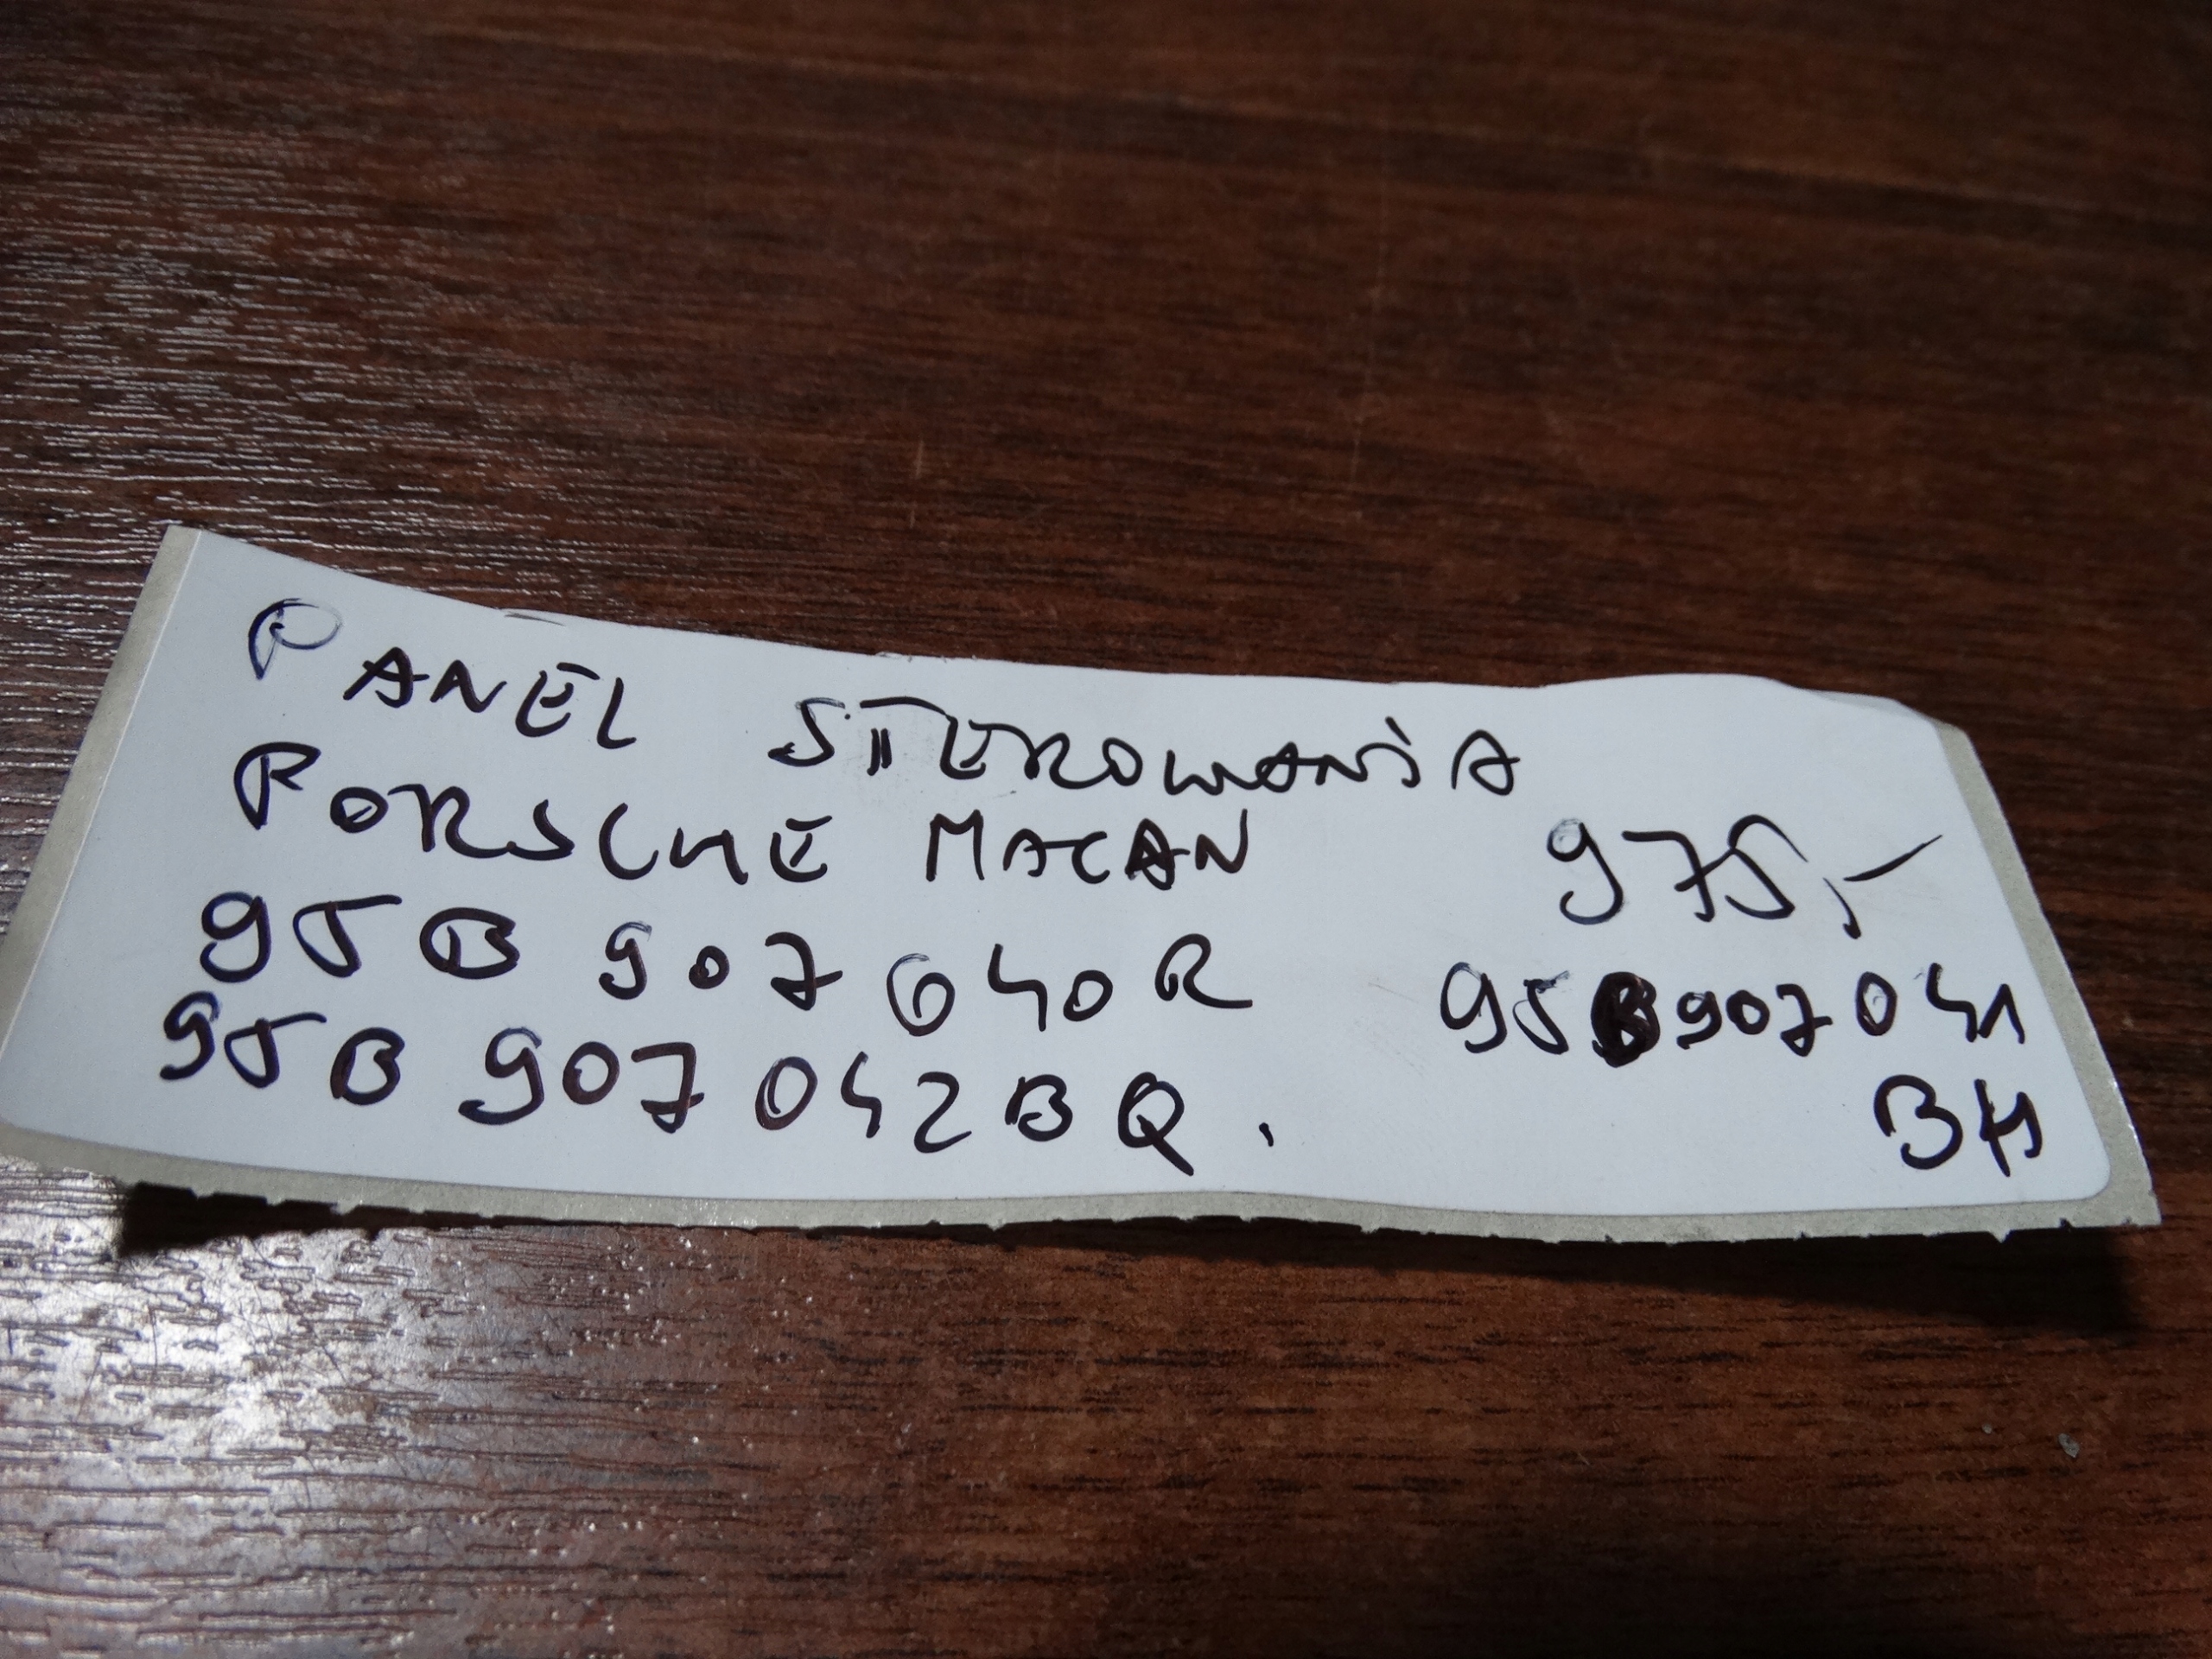 PANEL STEROWANIA
PORSCHE MACAN
975,-
95B 907 040R
95B907041
95B 907 042BQ.
BH